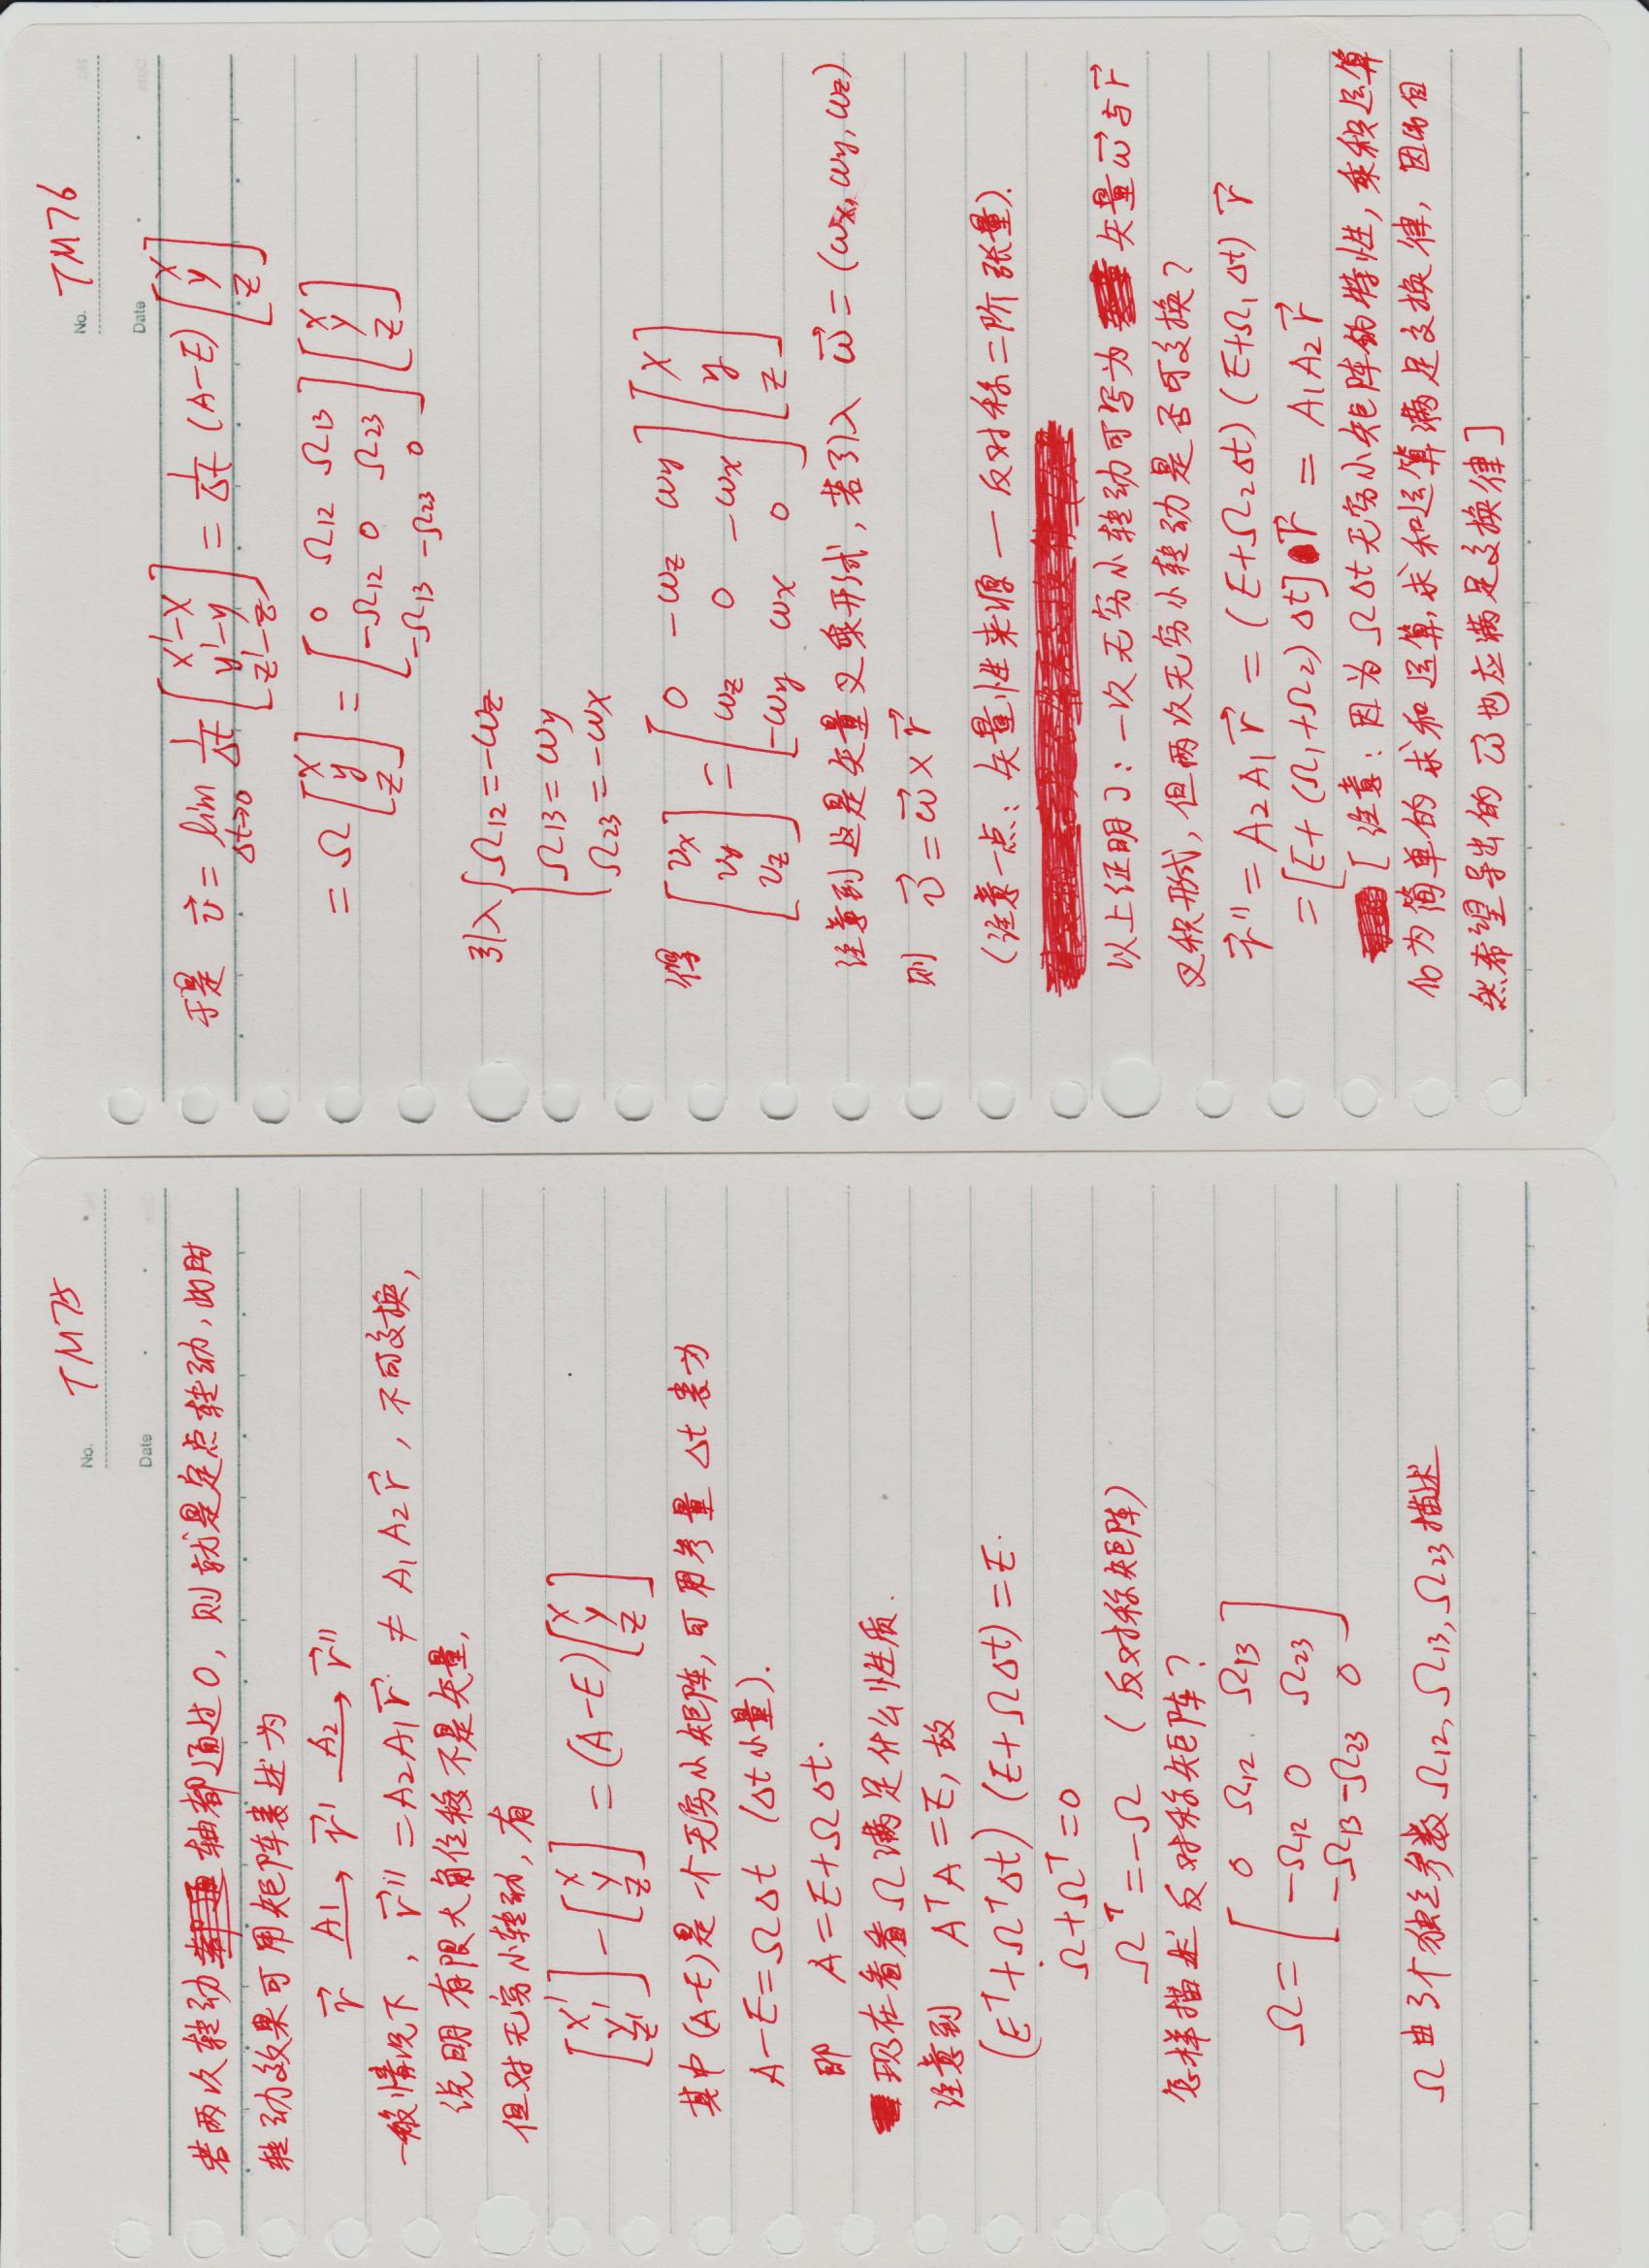 No. TM75
Date
若两次转动轴都通过O, 则就是定点转动, 此时
转动效果可用矩阵表述为
r⃗ —A1→ r⃗' —A2→ r⃗''
一般情况下, r⃗'' = A2A1r⃗ ≠ A1A2r⃗, 不可交换,
说明有限大角位移不是矢量,
但对无穷小转动, 有
[x' y' z'] - [x y z] = (A-E)[x y z]
其中(A-E)是一个无穷小矩阵, 可用参量 Δt 表为
A-E=ΩΔt (Δt小量).
即 A=E+ΩΔt.
现在看看Ω满足什么性质.
注意到 AᵀA=E, 故
(Eᵀ+ΩᵀΔt) (E+ΩΔt)=E.
Ω+Ωᵀ=0
Ωᵀ=-Ω (反对称矩阵)
怎样描述反对称矩阵?
Ω= [0 Ω12 Ω13
-Ω12 0 Ω23
-Ω13 -Ω23 0]
Ω由3个独立参数Ω12, Ω13, Ω23描述
No. TM76
Date
于是 v⃗ = lim Δt→0 1/Δt [x'-x y'-y z'-z] = 1/Δt (A-E) [x y z]
= Ω [x y z] = [0 Ω12 Ω13
-Ω12 0 Ω23
-Ω13 -Ω23 0] [x y z]
引入 { Ω12=-ωz
Ω13=ωy
Ω23=-ωx
得 [vx vy vz] = [0 -ωz ωy
ωz 0 -ωx
-ωy ωx 0] [x y z]
注意到这是矢量叉乘形式, 若引入 ω⃗ = (ωx, ωy, ωz)
则 v⃗ = ω⃗ × r⃗
(注意一点: 矢量性来源 — 反对称二阶张量).
以上证明了: 一次无穷小转动可写为矢量ω⃗与r⃗
叉积形式, 但两次无穷小转动是否可交换?
r⃗'' = A2A1r⃗ = (E+Ω2Δt) (E+Ω1Δt) r⃗
=[E+(Ω1+Ω2)Δt] r⃗ = A1A2r⃗
[注意: 因为ΩΔt无穷小矩阵的特性, 乘积运算
化为简单的求和运算, 求和运算满足交换律, 因而自
然希望导出的ω⃗也应满足交换律]